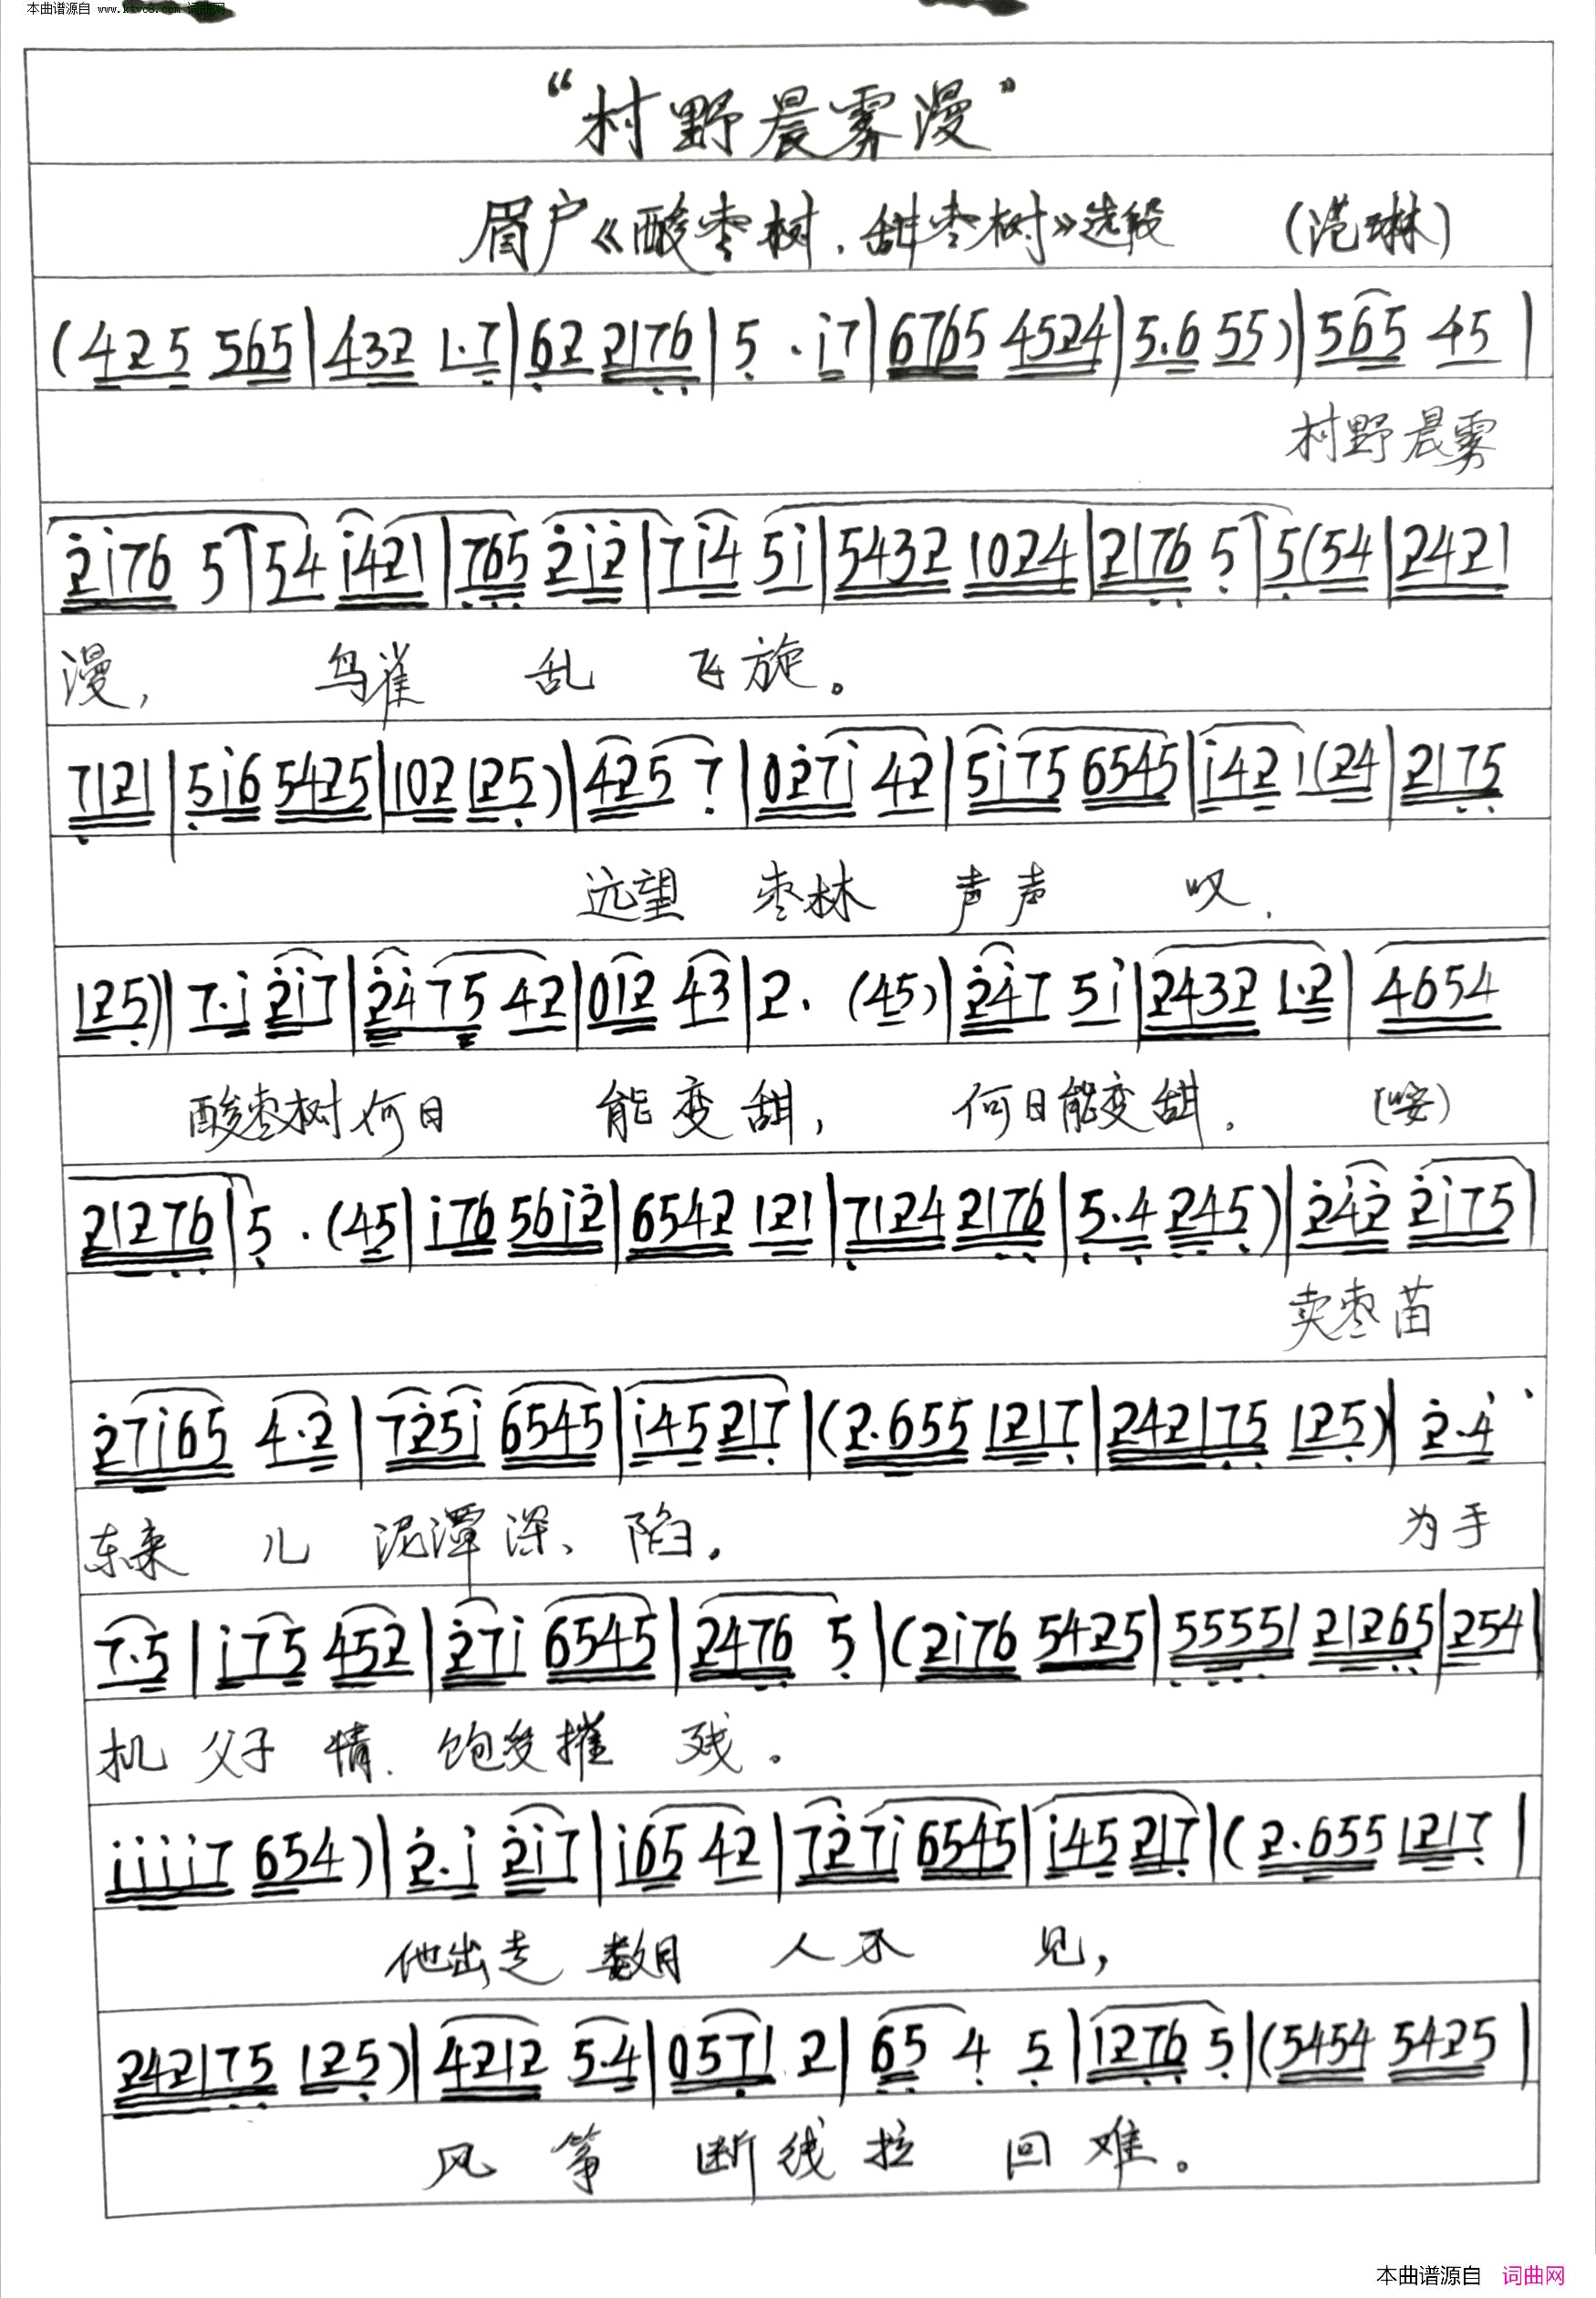 本曲谱源自 www.ktvc8.com 词曲网
“村野晨雾漫”
眉户《酸枣树、甜枣树》选段 (范琳)
(425 565|432 1·7|62 2176|5 · i7|6765 4524|5·6 55)|565 45|
村野晨雾
2i76 5|54 i421|765 2i2|7i4 5i|5432 1024|2176 5|5(54|2421
漫, 鸟雀 乱 飞旋。
7121|5i6 5425|102 125)|425 7|027i 42|5i75 6545|i42 i(24|2175
远望 枣林 声声 叹,
125)|7·i 2i7|24 75 42|012 43|2· (45)|247 5i|2432 1·2|4654
酸枣树何日 能变甜, 何日能变甜。 (咹)
21276|5 · (45|i76 56i2|6542 121|7124 2176|5·4 245)|242 2i75|
卖枣苗
27i65 4·2|725i 6545|i45217|(2·655 1217|242175 125)|2·4
东来 儿 泥潭深、陷。 为手
7·5|i75 452|27i 6545|2476 5|(2i76 5425|55551 21265|254|
机 父子 情、饱受摧 残。
iiii7 654)|2·i 2i7|i65 42|727i 6545|i45 217|(2·655 1217|
他出走 数月 人不 见,
242175 125)|4212 5·4|0571 2|65 4 5|1276 5|(5454 5425|
风 筝 断线拉 回 难。
本曲谱源自 词曲网